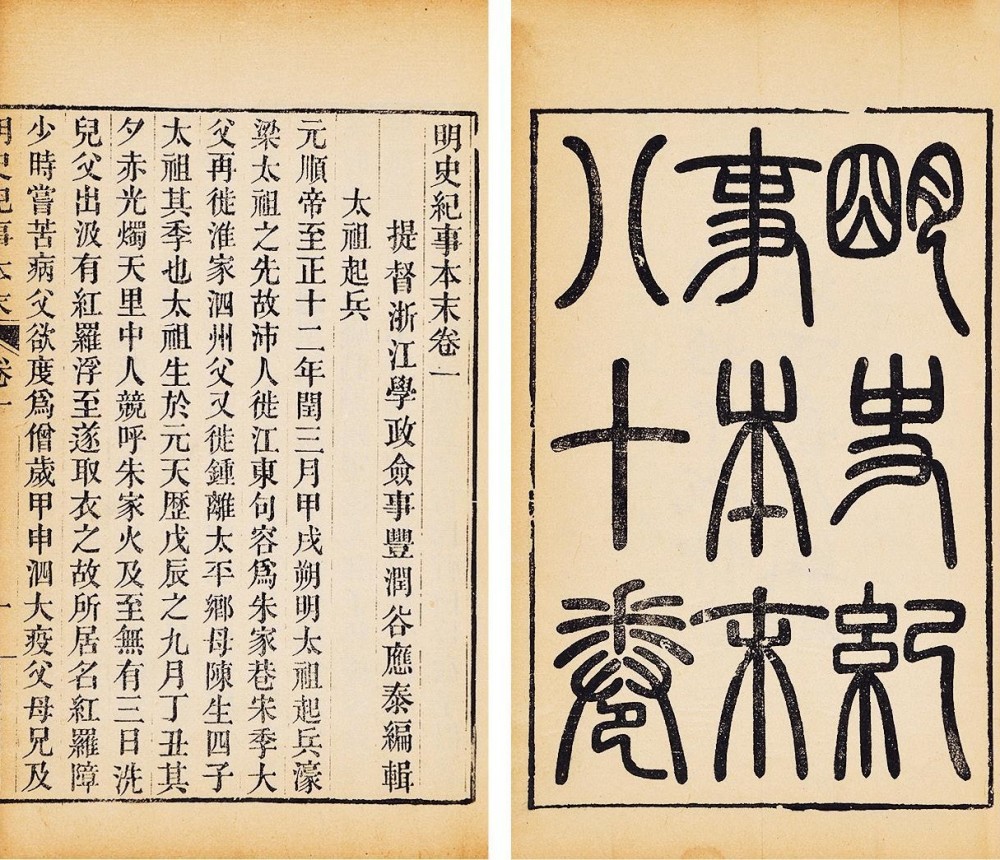 明史紀
事本末
八十卷
明史紀事本末卷一
提督浙江學政僉事豐潤谷應泰編輯
太祖起兵
元順帝至正十二年閏三月甲戌朔明太祖起兵濠
梁太祖之先故沛人徙江東句容爲朱家巷宋季大
父再徙淮家泗州父又徙鍾離太平鄉母陳生四子
太祖其季也太祖生於元天歷戊辰之九月丁丑其
夕赤光燭天里中人競呼朱家火及至無有三日洗
兒父出汲有紅羅浮至遂取衣之故所居名紅羅障
少時嘗苦病父欲度爲僧歲甲申泗大疫父母兄及
明史紀事本末 卷一 一